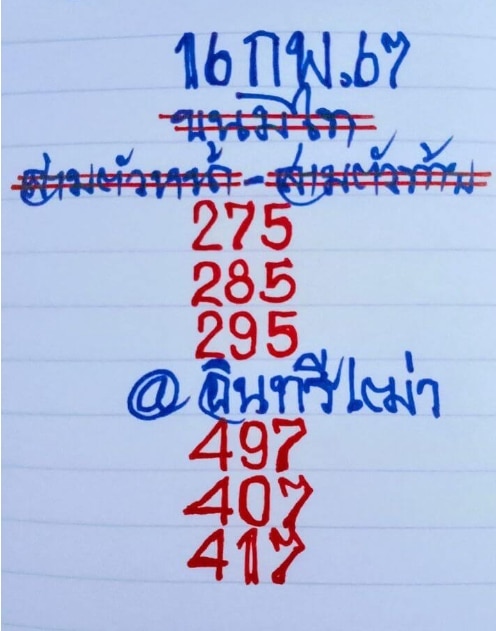 16 กพ.67
ขนมีไท
สามตัวหน้า - สามตัวท้าย
275
285
295
@ อินทรีเฒ่า
497
407
417